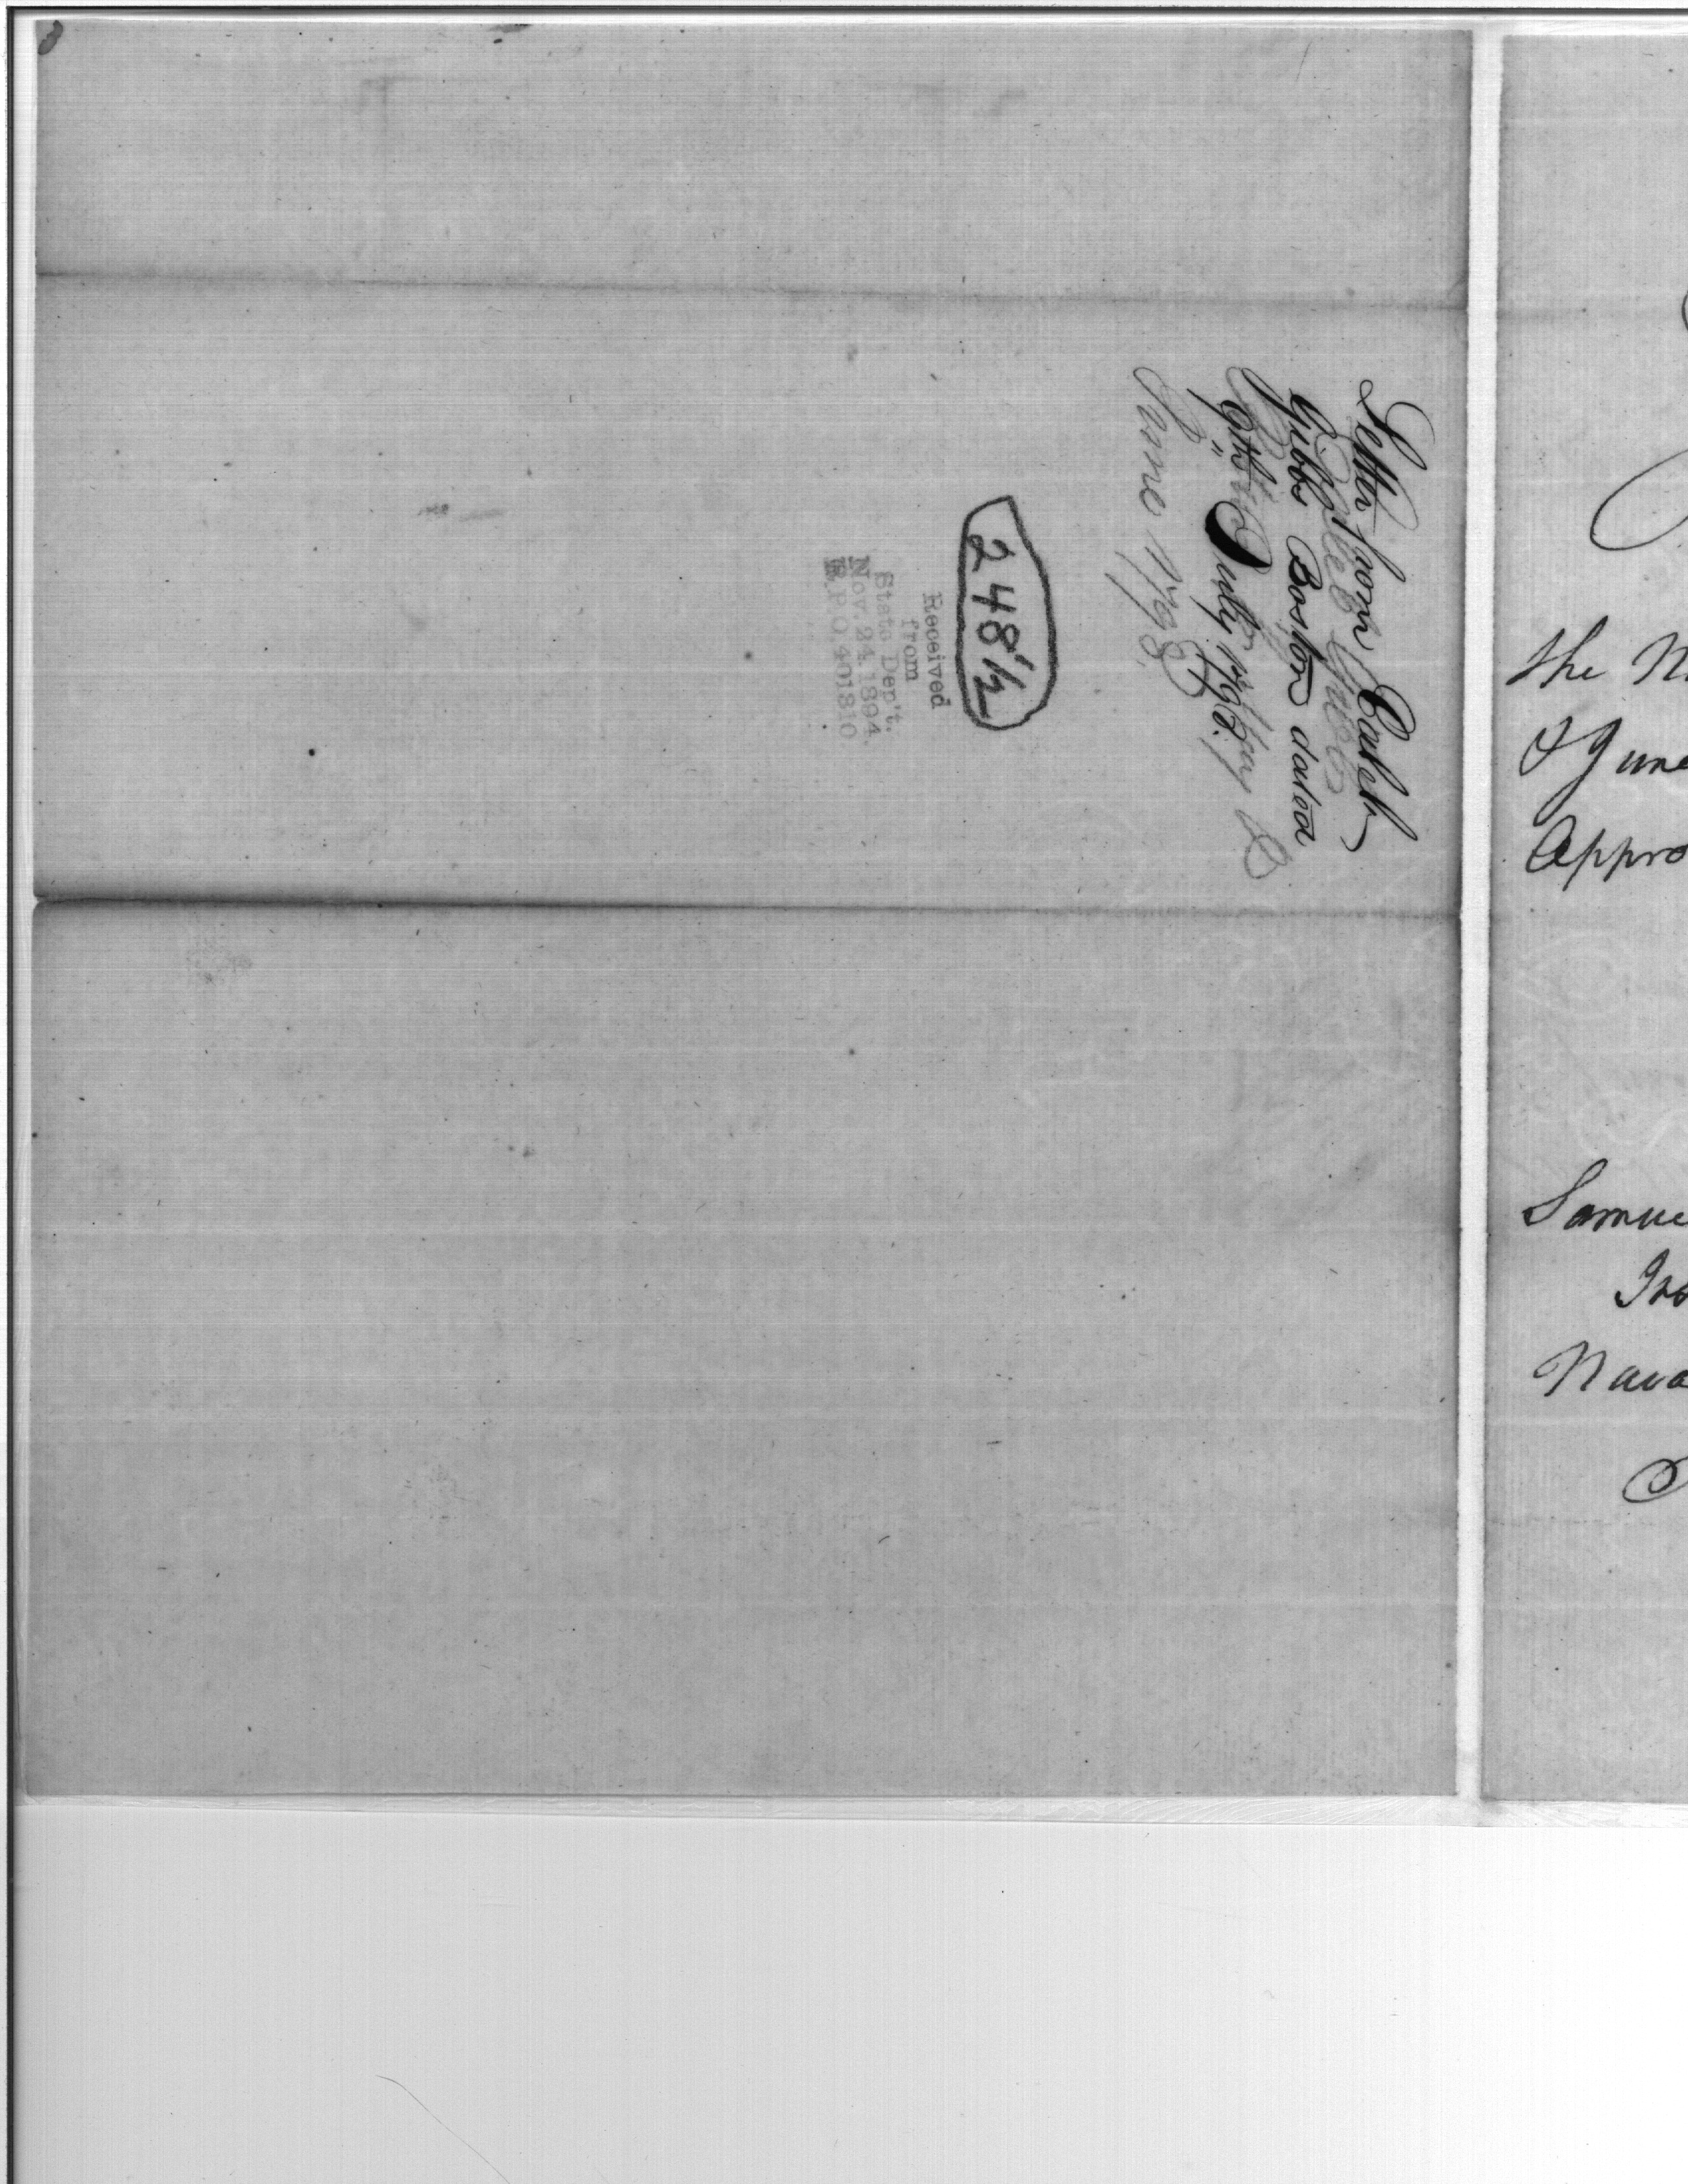 Letter from Caleb
Gibbs Boston dated
9th July 1798.
Caleb Gibbs
May &
June 1798
248 1/2
Received
from
State Dep't.
Nov. 24, 1894.
R.P.O. 401310
the
& June
Appro
Samue
Nava